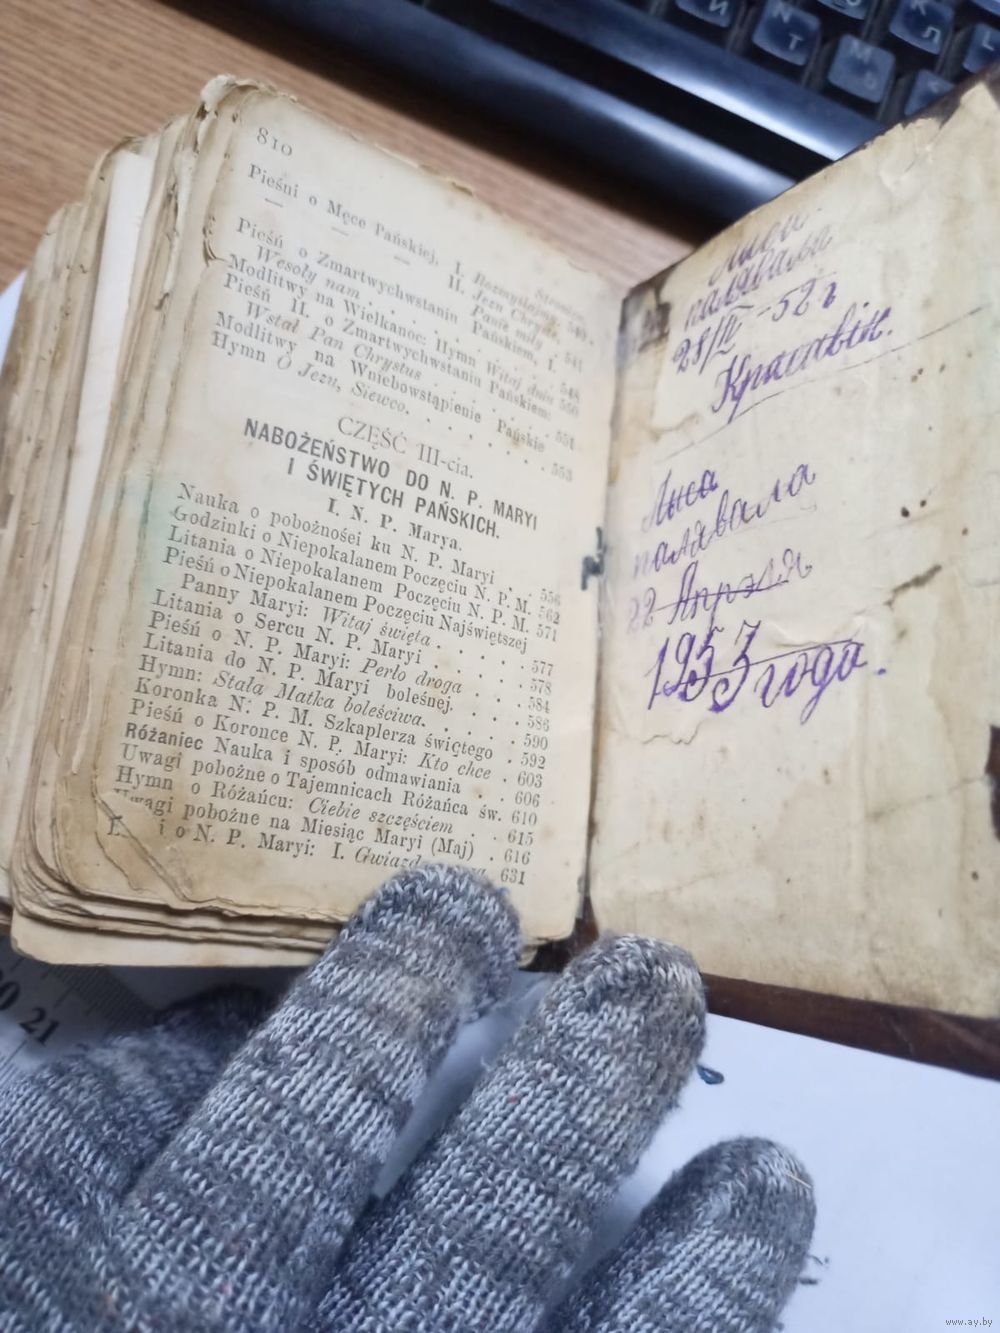 810
Pieśni o Męce Pańskiej, I. Rozmyślajmy
— — — II. Jezu Chryste,
Panie miły
Pieśń o Zmartwychwstaniu Pańskiem, I.
Wesoły nam . . . . . . 541
Modlitwy na Wielkanoc: Hymn Witaj dniu 548
Pieśń II. o Zmartwychwstaniu Pańskiem: 550
Wstał Pan Chrystus . . . . . 551
Modlitwy na Wniebowstąpienie Pańskie
Hymn O Jezu, Siewco. . . . . . 553
CZĘŚĆ III-cia.
NABOŻEŃSTWO DO N. P. MARYI
I ŚWIĘTYCH PAŃSKICH.
I. N. P. Marya.
Nauka o pobożności ku N. P. Maryi . . 556
Godzinki o Niepokalanem Poczęciu N. P. M. 562
Litania o Niepokalanem Poczęciu N. P. M. 571
Pieśń o Niepokalanem Poczęciu Najświętszej
Panny Maryi: Witaj święta . . . . . 577
Litania o Sercu N. P. Maryi . . . . 578
Pieśń o N. P. Maryi: Perło droga . . . 584
Litania do N. P. Maryi boleśnej. . . . 586
Hymn: Stała Matka boleściwa. . . . . 590
Koronka N. P. M. Szkaplerza świętego . 592
Pieśń o Koronce N. P. Maryi: Kto chce . 603
Różaniec Nauka i sposób odmawiania . 606
Uwagi pobożne o Tajemnicach Różańca św. 610
Hymn o Różańcu: Ciebie szczęściem . . 615
Uwagi pobożne na Miesiąc Maryi (Maj) . 616
i o N. P. Maryi: I. 631
28/II - 52 г
палявала
22 Апрэля
1953 года.
И
Т
Л
20 21
www.ay.by